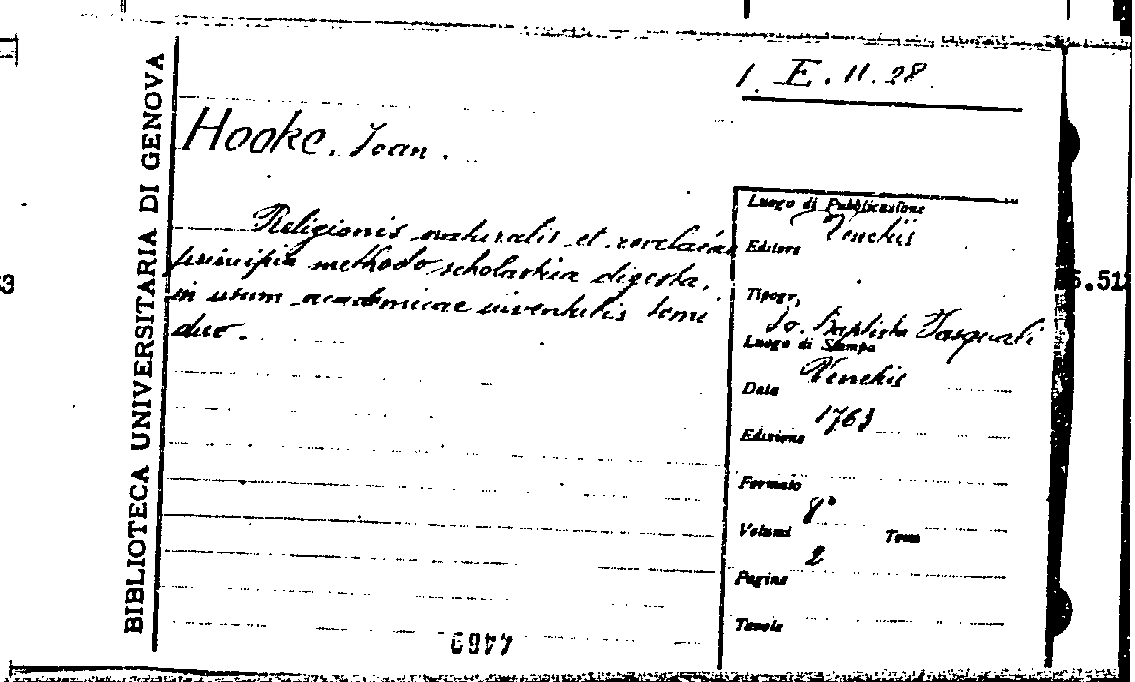 BIBLIOTECA UNIVERSITARIA DI GENOVA
1. E. 11. 28.
Hooke. Joan.
Religionis naturalis et revelatae
principia methodo scholastica digesta,
in usum academicae iuventutis tomi
duo.
Luogo di Pubblicazione
Venetiis
Editore
Tipogr,
Jo. Baptista Pasquali
Luogo di Stampa
Venetiis
Data
1763
Edizione
Formato
8°
Volumi Tomi
2
Pagine
Tavole
4469